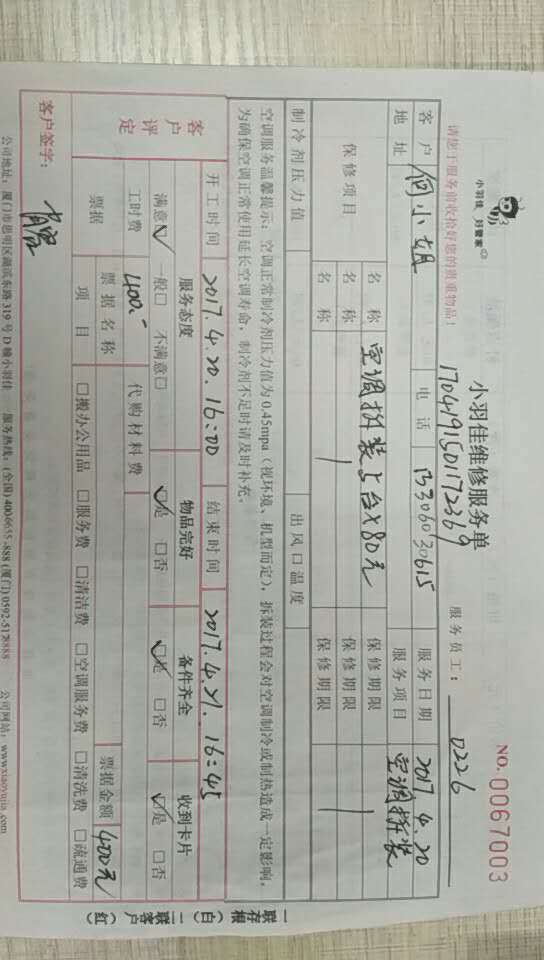 小羽佳 好管家
请您于服务前收拾好您的贵重物品！
小羽佳维修服务单
NO. 0067003
170419150172369
服务员工： D226
客户 何小姐 电话 13306030615 服务日期 2017.4.20
地址 服务项目 空调拆装
保修项目 名称 空调拆装5台×80元 保修期限
名称 保修期限
名称 保修期限
制冷剂压力值 出风口温度
空调服务温馨提示：空调正常制冷剂压力值为0.45mpa（视环境、机型而定），拆装过程会对空调制冷或制热造成一定影响，
为确保空调正常使用延长空调寿命，制冷剂不足时请及时补充。
客户评定
开工时间 2017.4.20.16:00 结束时间 2017.4.21.16:45
服务态度 物品完好 备件齐全 收到卡片
满意☑ 一般□ 不满意□ ☑是 □否 ☑是 □否 ☑是 □否
工时费 400.- 代购材料费
票据 票据名称 票据金额 400元
项目 □搬办公用品 □服务费 □清洁费 □空调服务费 □清洗费 □疏通费
客户签字：
一联存根（白） 二联客户（红）
公司地址：厦门市思明区湖滨东路319号D幢小羽佳 服务热线：(全国)400-6655-888 (厦门)0592-5178888 公司网站：www.xiaoyujia.com